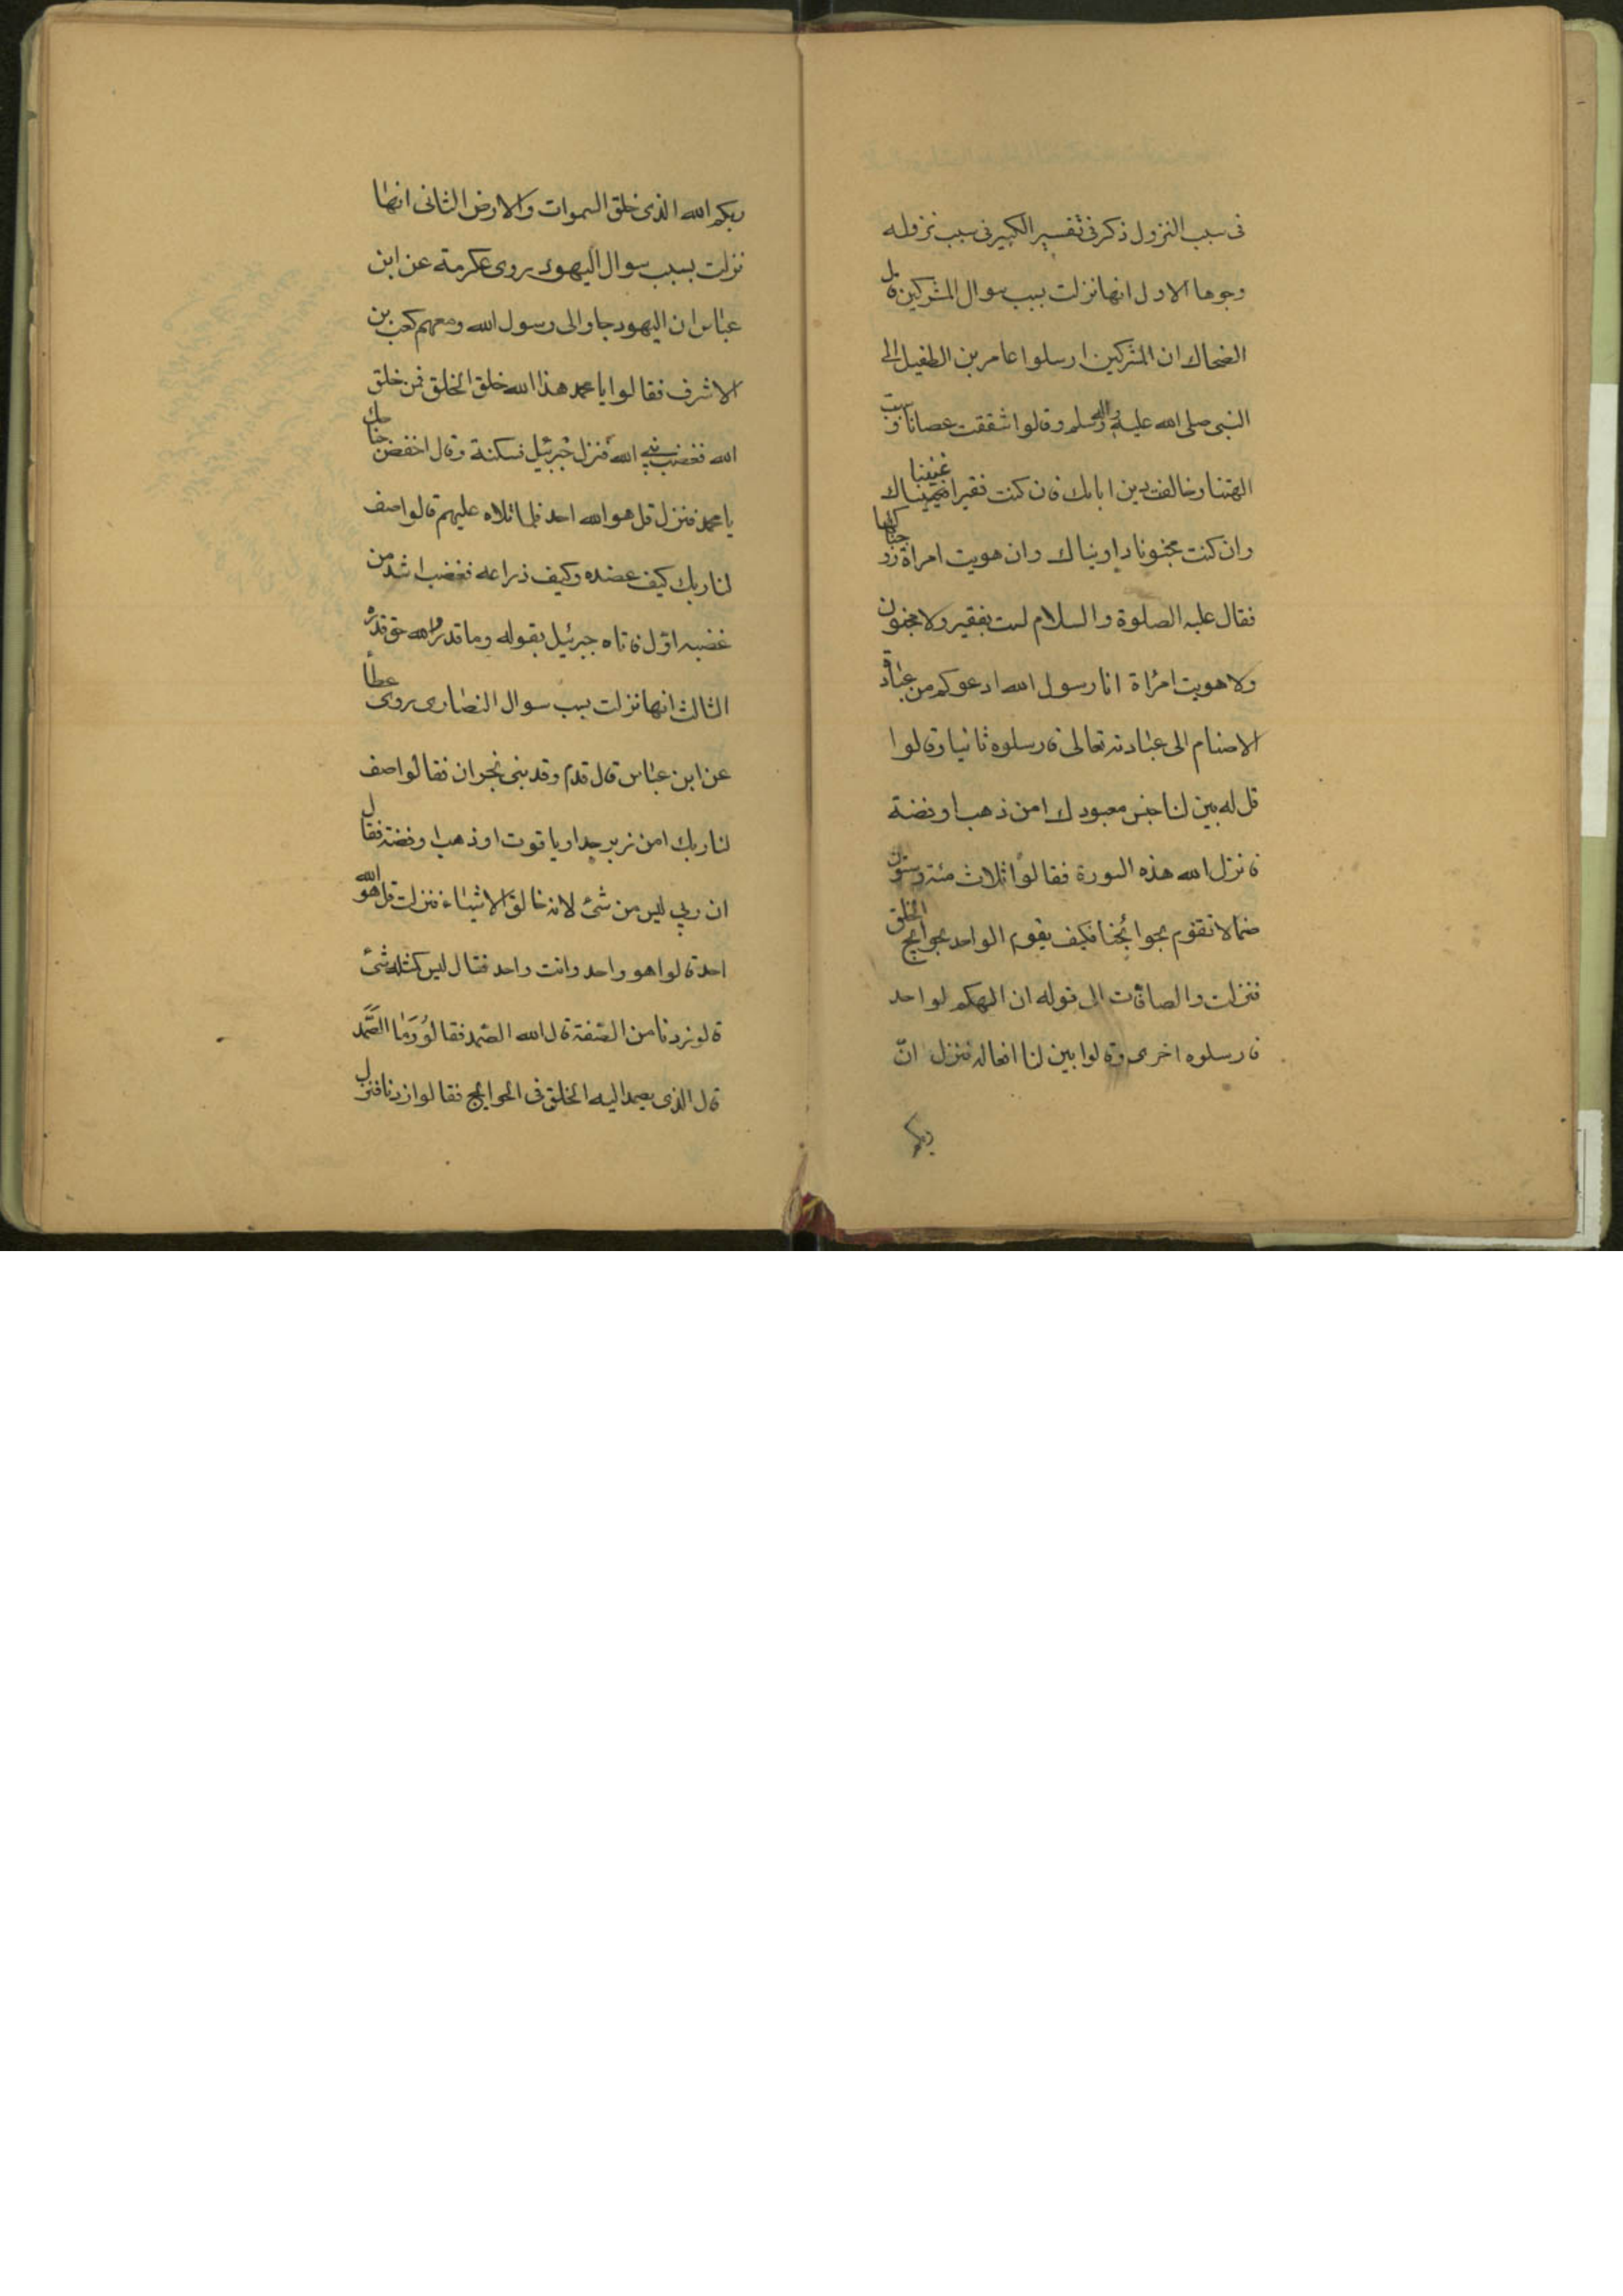 فى سبب النزول ذكر فى تفسير الكبير فى سبب نزوله
وجوها الاول انها نزلت بسبب سوال المشركين قال
الضحاك ان المشركين ارسلوا عامر بن الطفيل الى
النبى صلى الله عليه واله وسلم وقالوا شققت عصانا وسببت
الهتنا وخالفت دين ابابك فان كنت فقيرا اغنيناك
وان كنت مجنونا داويناك وان هويت امراة زوجناكها
فقال عليه الصلوة والسلام لست بفقير ولا مجنون
ولا هويت امراة انا رسول الله ادعوكم من عبادة
الاصنام الى عبادته تعالى فارسلوه ثانيا وقالوا
قل له بين لنا جنس معبودك امن ذهب او فضة
فانزل الله هذه السورة فقالوا ثلاث مئة وستون
صنما لا تقوم بحوائجنا فكيف يقوم الواحد بحوايج الخلق
فنزلت والصافات الى قوله ان الهكم لواحد
فارسلوه اخرى وقالوا بين لنا افعاله فنزل ان
ربكم
ربكم الله الذى خلق السموات والارض الثانى انها
نزلت بسبب سوال اليهود روى عكرمة عن ابن
عباس ان اليهود جاوا الى رسول الله ومعهم كعب بن
الاشرف فقالوا يا محمد هذا الله خلق الخلق فمن خلق
الله فغضب نبي الله فنزل جبرئيل فسكنه وقال اخفض جناحك
يا محمد فنزل قل هو الله احد فلما تلاه عليهم قالوا صف
لنا ربك كيف عضده وكيف ذراعه فغضب اشد من
غضبه اول فاتاه جبرئيل بقوله وما قدروا الله حق قدره
الثالث انها نزلت بسبب سوال النصارى روى عطا
عن ابن عباس قال قدم وفد بنى نجران فقالوا صف
لنا ربك امن زبرجد او ياقوت او ذهب او فضة فقال
ان ربي ليس من شئ لانه خالق الاشياء فنزلت قل هو الله
احد قالوا هو واحد وانت واحد فقال ليس كمثله شئ
قالو زدنا من الصفة قال الله الصمد فقالو وما الصمد
قال الذى يصمد اليه الخلق فى الحوايج فقالوا زدنا فنزل